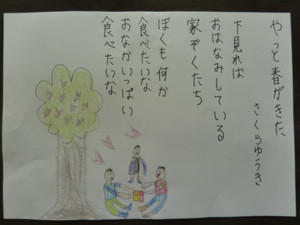 やっと春がきた
さくらゆうき
下見れば
おはなみしている
家ぞくたち
ぼくも何か
食べたいな
おなかいっぱい
食べたいな